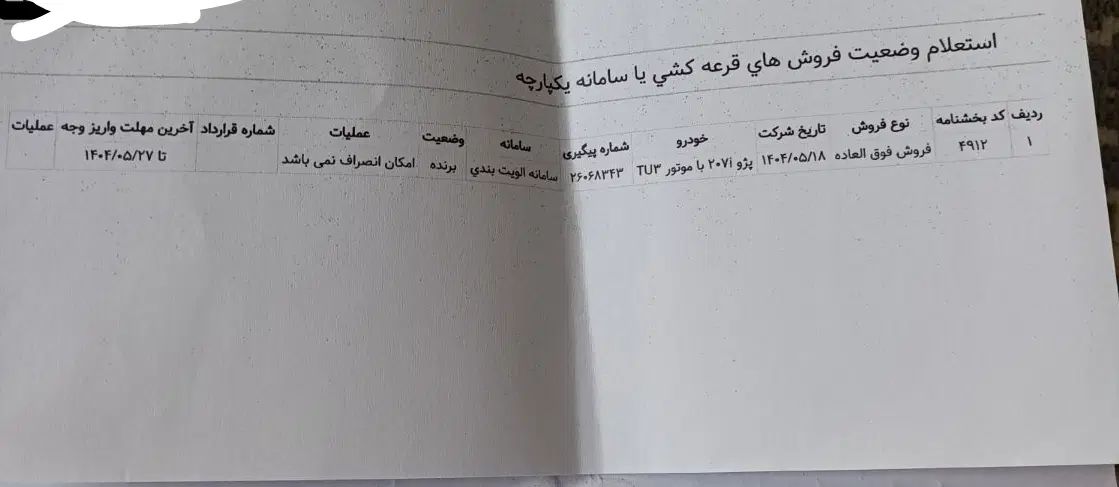 استعلام وضعیت فروش هاي قرعه کشي یا سامانه یکپارچه
ردیف کد بخشنامه نوع فروش تاریخ شرکت خودرو شماره پیگیری سامانه وضعیت عملیات شماره قرارداد آخرین مهلت واریز وجه عملیات
۱ ۴۹۱۲ فروش فوق العاده ۱۴۰۴/۰۵/۱۸ پژو ۲۰۷i با موتور TU۳ ۲۶۰۶۸۳۴۳ سامانه الویت بندي برنده امکان انصراف نمی باشد تا ۱۴۰۴/۰۵/۲۷